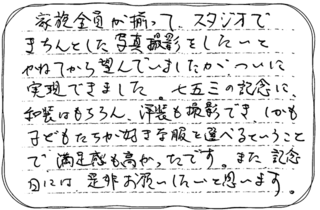 家族全員が揃って、スタジオで
きちんとした写真撮影をしたいと
かねてから望んでいましたが、ついに
実現できました。七五三の記念に、
和装はもちろん、洋装も撮影でき、しかも
子どもたちが好きな服を選べるということ
で、満足感も高かったです。また記念
日には是非お願いしたいと思います。